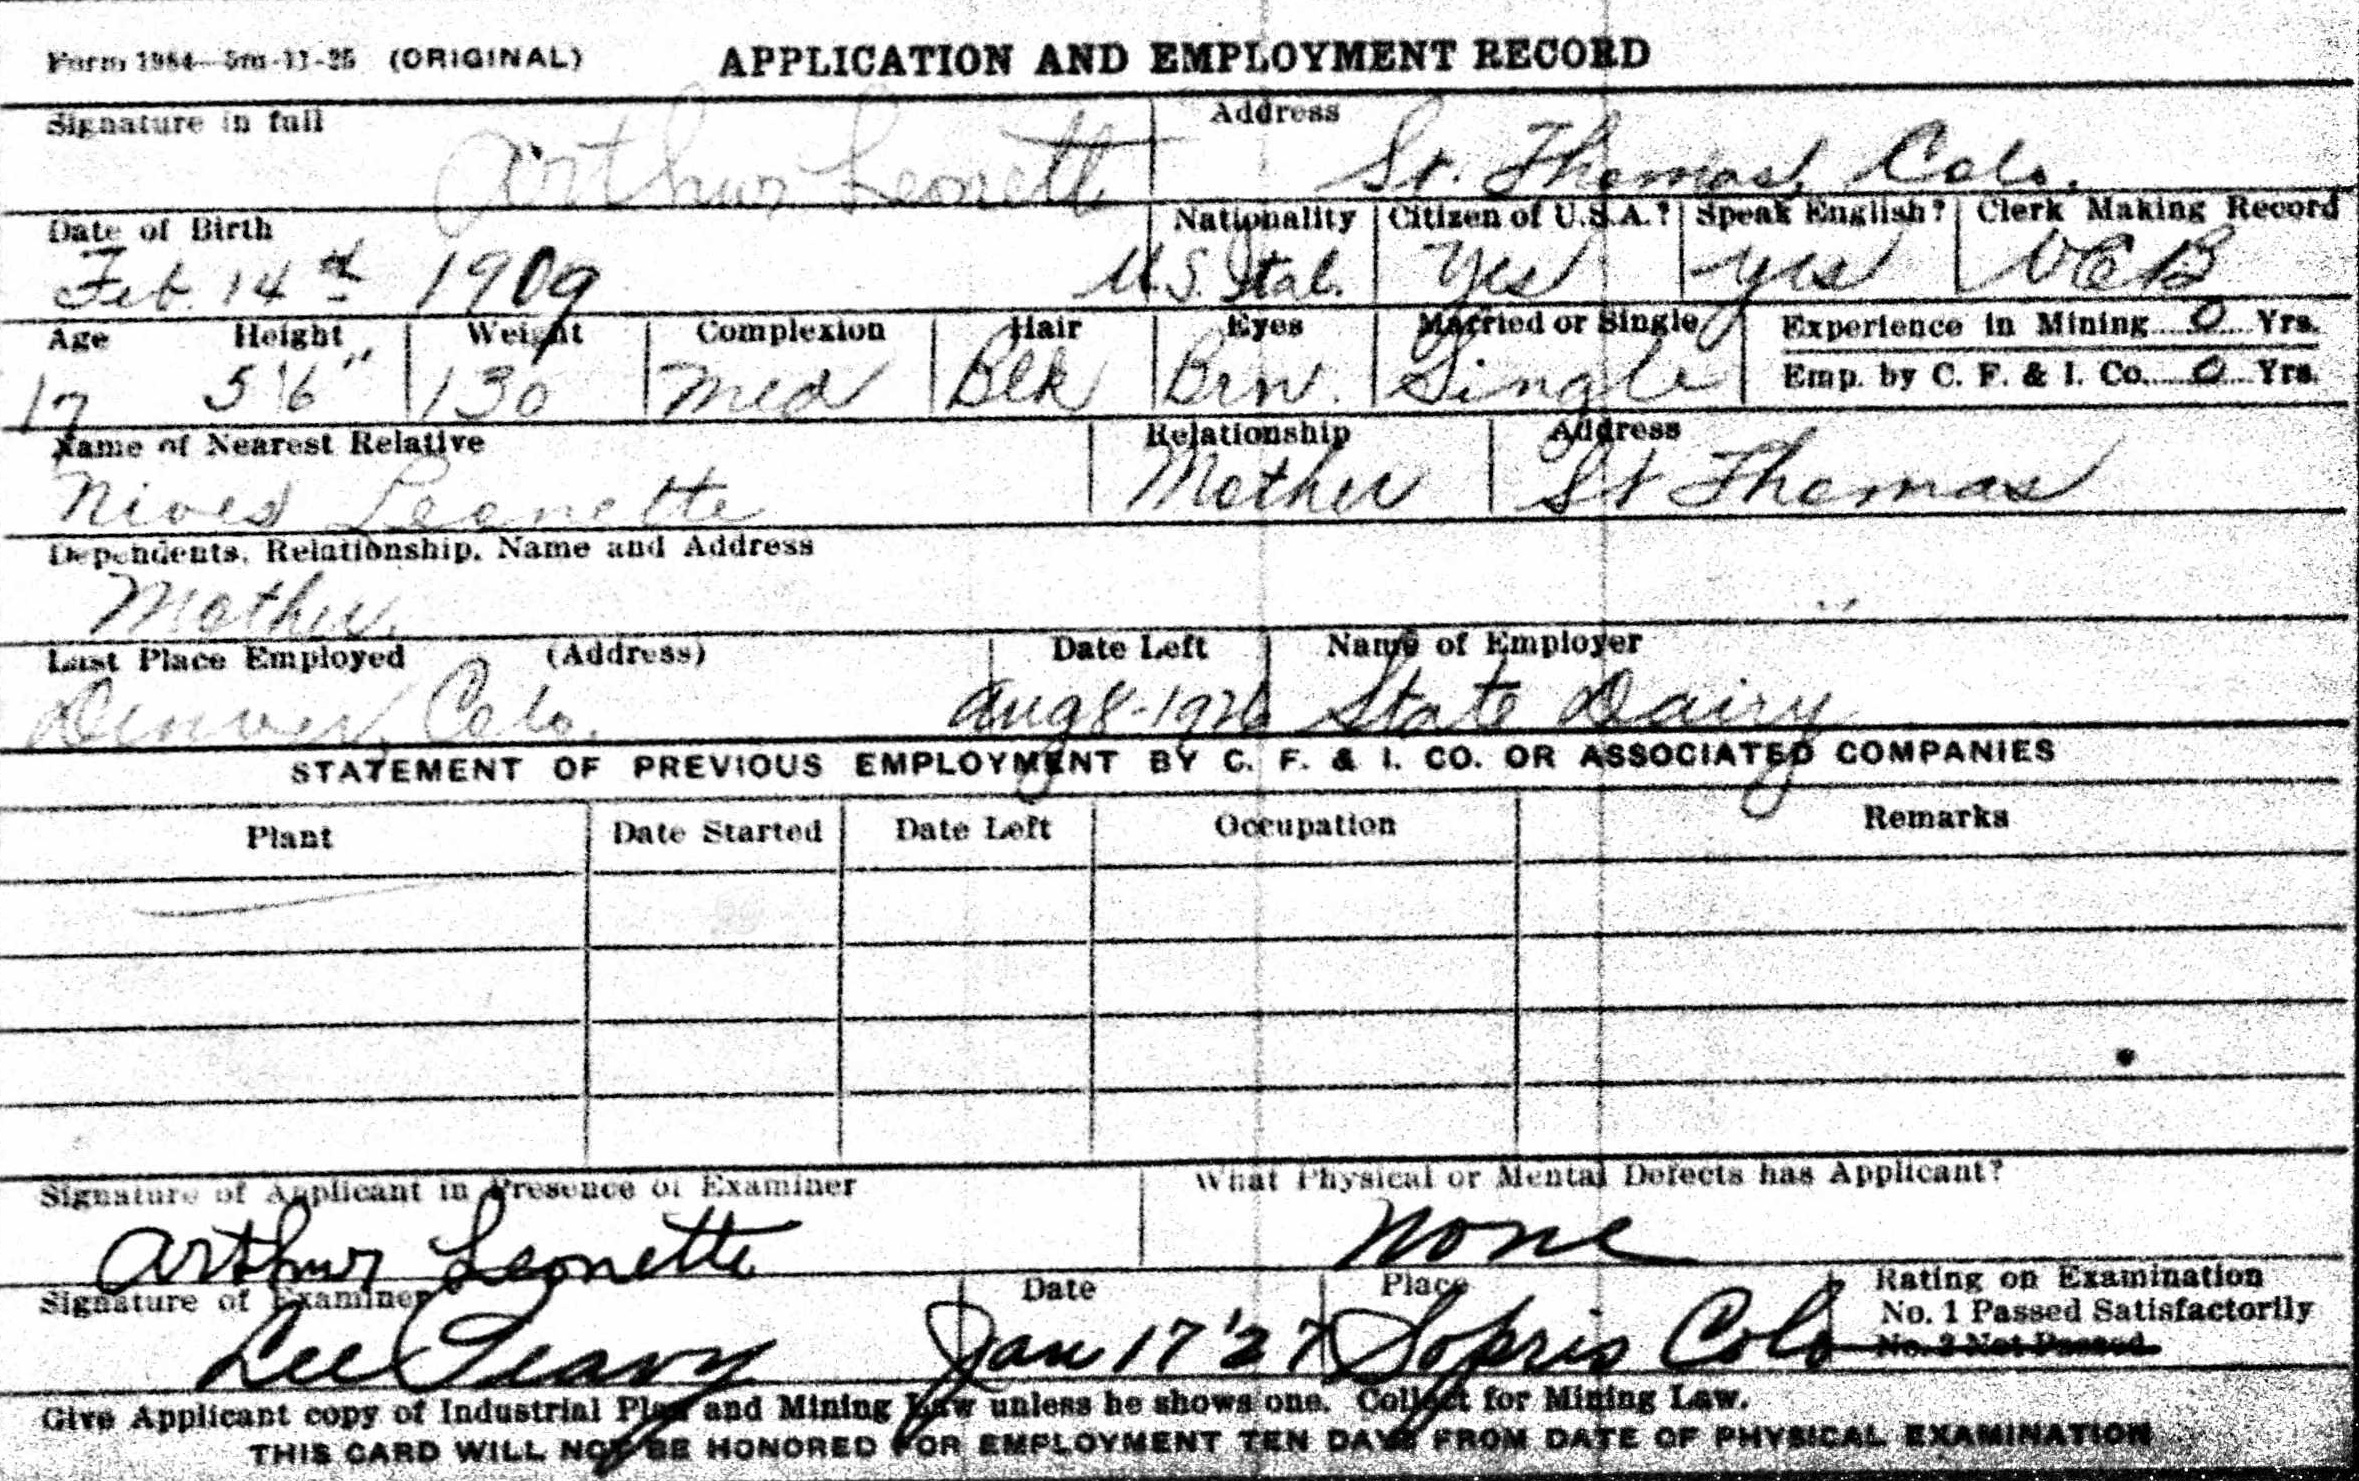 Form 1984—5m-11-25 (ORIGINAL) APPLICATION AND EMPLOYMENT RECORD
Signature in full Address
Arthur Leonett St. Thomas, Colo.
Date of Birth Nationality Citizen of U.S.A.? Speak English? Clerk Making Record
Feb. 14th 1909 U.S. Ital. Yes yes VCB
Age Height Weight Complexion Hair Eyes Married or Single Experience in Mining 0 Yrs.
17 5'6" 130 Med Blk Brn. Single Emp. by C. F. & I. Co. 0 Yrs.
Name of Nearest Relative Relationship Address
Leonette Mother St Thomas
Dependents, Relationship, Name and Address
Mother.
Last Place Employed (Address) Date Left Name of Employer
Denver, Colo. Aug 8-1926 State Dairy
STATEMENT OF PREVIOUS EMPLOYMENT BY C. F. & I. CO. OR ASSOCIATED COMPANIES
Plant Date Started Date Left Occupation Remarks
Signature of Applicant in Presence of Examiner What Physical or Mental Defects has Applicant?
Arthur Leonette None
Signature of Examiner Date Place Rating on Examination
No. 1 Passed Satisfactorily
Lee Peavy Jan 17 '27 Sopris Colo No. 2 Not Passed
Give Applicant copy of Industrial Plan and Mining Law unless he shows one. Collect for Mining Law.
THIS CARD WILL NOT BE HONORED FOR EMPLOYMENT TEN DAYS FROM DATE OF PHYSICAL EXAMINATION